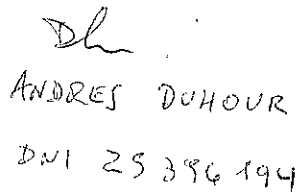 ANDRES DUHOUR
DNI 25 396 194